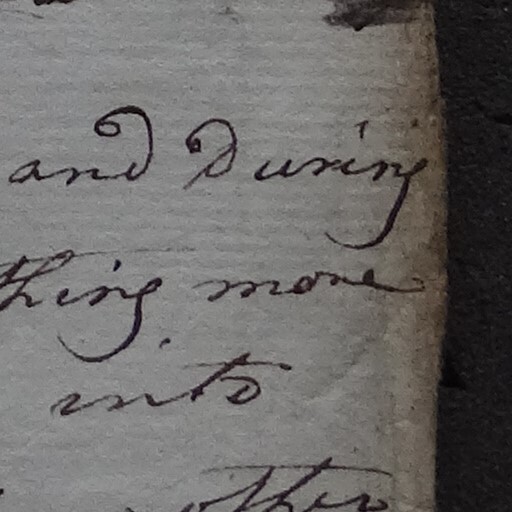 and During
thing more
into
other